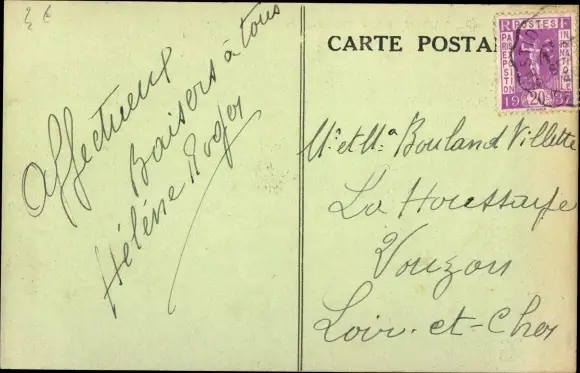 Affectueux
Baisers à tous
Hélène Roger
CARTE POSTA
RF POSTES
PARIS EXPOSITION
INTERNATIONALE
1937
20c
Mr et Me Bouland Villette
La Houssaye
Vouzon
Loir-et-Cher